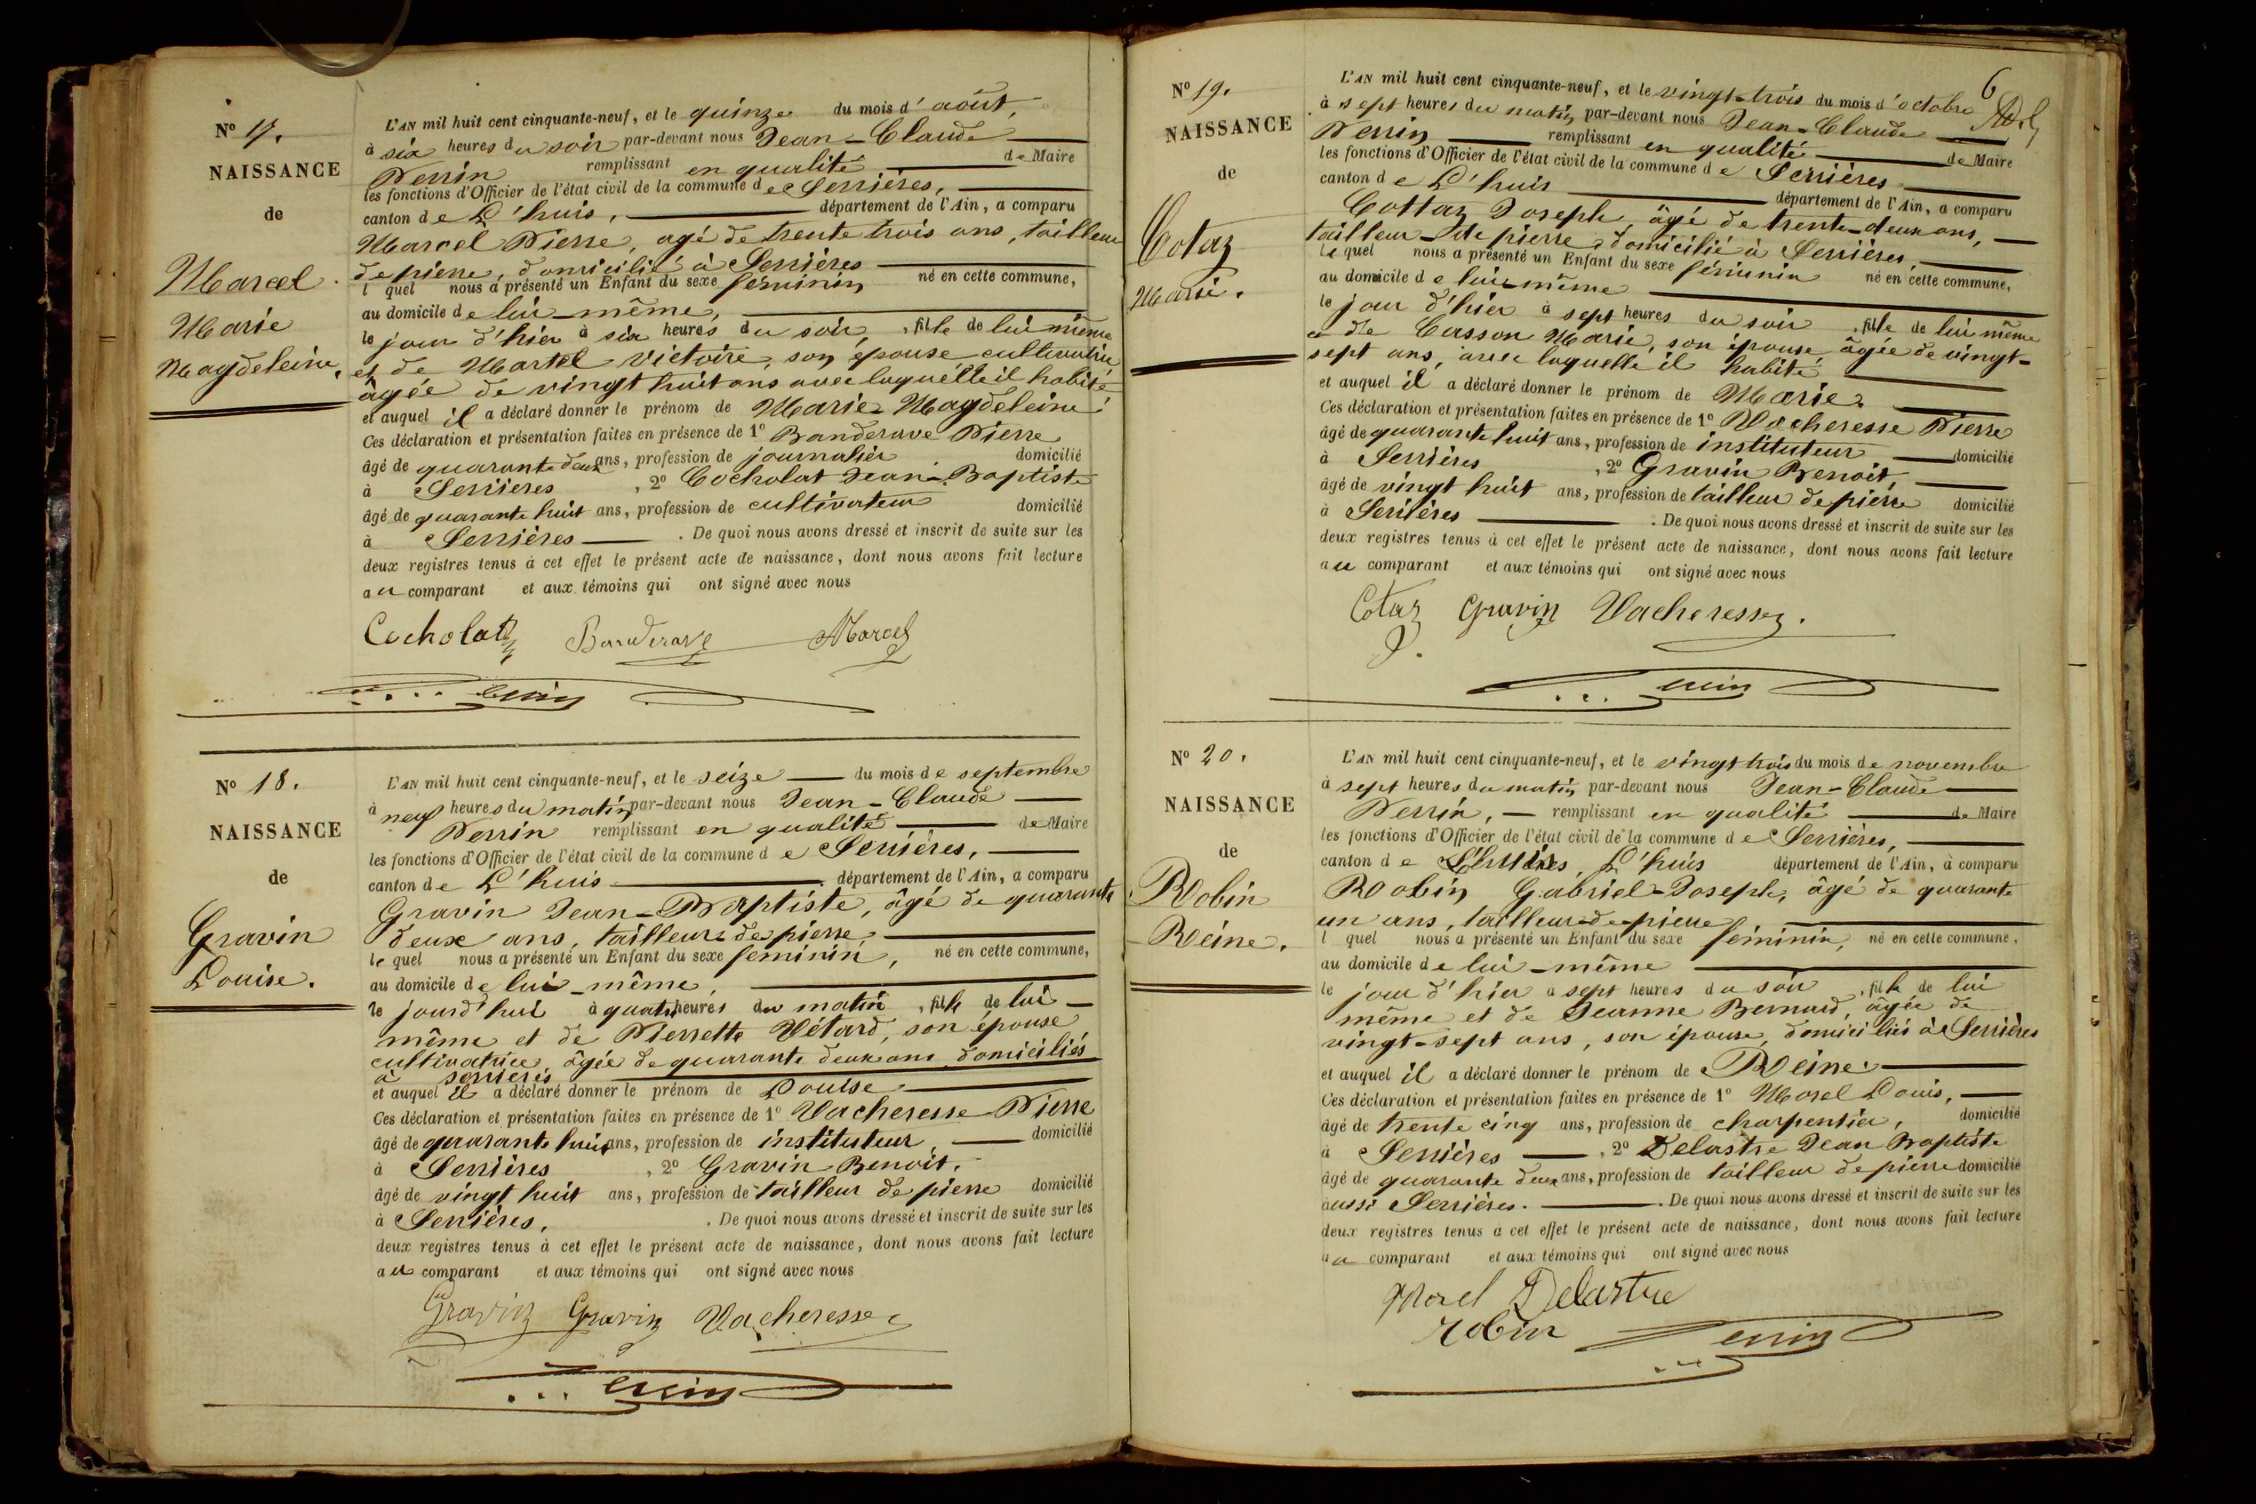 N° 17.
NAISSANCE
de
Marcel
Marie
Magdeleine.
L'AN mil huit cent cinquante-neuf, et le quinze du mois d'août,
à six heures du soir par-devant nous Jean-Claude
Perrin remplissant en qualité de Maire
les fonctions d'Officier de l'état civil de la commune de Serrières,
canton de L'huis, département de l'Ain, a comparu
Marcel Pierre, agé de trente trois ans, tailleur
de pierre, domicilié à Serrières
l quel nous a présenté un Enfant du sexe féminin né en cette commune,
au domicile de lui-même,
le jour d'hier à six heures du soir, fille de lui même
et de Martel Victoire, son épouse cultivatrice
âgée de vingt huit ans avec laquelle il habite
et auquel il a déclaré donner le prénom de Marie Magdeleine.
Ces déclaration et présentation faites en présence de 1° Banderave Pierre
âgé de quarante deux ans, profession de journalier domicilié
à Serrieres, 2° Cocholat Jean-Baptiste
âgé de quarante huit ans, profession de cultivateur domicilié
à Serrières. De quoi nous avons dressé et inscrit de suite sur les
deux registres tenus à cet effet le présent acte de naissance, dont nous avons fait lecture
au comparant et aux témoins qui ont signé avec nous
Cocholat Banderave Marcel
Perrin
N° 18.
NAISSANCE
de
Gravin
Louise.
L'AN mil huit cent cinquante-neuf, et le seize du mois de septembre
à neuf heures du matin par-devant nous Jean-Claude
Perrin remplissant en qualité de Maire
les fonctions d'Officier de l'état civil de la commune de Serrières,
canton de L'huis département de l'Ain, a comparu
Gravin Jean-Baptiste, âgé de quarante
deux ans, tailleur de pierre
le quel nous a présenté un Enfant du sexe feminin, né en cette commune,
au domicile de lui-même,
le jourd'hui à quatre heures du matin, fille de lui-
même et de Pierrette Vétard, son épouse
cultivatrice, âgée de quarante deux ans domiciliés
à serrieres
et auquel il a déclaré donner le prénom de Louise
Ces déclaration et présentation faites en présence de 1° Vacheresse Pierre
âgé de quarante huit ans, profession de instituteur, domicilié
à Serrières, 2° Gravin Benoit,
âgé de vingt huit ans, profession de tailleur de pierre domicilié
à Serrières. De quoi nous avons dressé et inscrit de suite sur les
deux registres tenus à cet effet le présent acte de naissance, dont nous avons fait lecture
au comparant et aux témoins qui ont signé avec nous
Gravin Gravin Vacheresse
Perrin
6
N° 19.
NAISSANCE
de
Cotaz
Marie.
L'AN mil huit cent cinquante-neuf, et le vingt-trois du mois d'octobre
à sept heures du matin par-devant nous Jean-Claude
Perrin remplissant en qualité de Maire
les fonctions d'Officier de l'état civil de la commune de Serrières
canton de L'huis département de l'Ain, a comparu
Cottaz Joseph âgé de trente-deux ans,
tailleur de pierre domicilié à Serrières
le quel nous a présenté un Enfant du sexe féminin né en cette commune,
au domicile de lui même
le jour d'hier à sept heures du soir, fille de lui même
et de Casson Marie, son épouse âgée de vingt-
sept ans, avec laquelle il habite
et auquel il a déclaré donner le prénom de Marie
Ces déclaration et présentation faites en présence de 1° Vacheresse Pierre
âgé de quarante huit ans, profession de instituteur domicilié
à Serrières, 2° Gravin Benoit,
âgé de vingt huit ans, profession de tailleur de pierre domicilié
à Serrières. De quoi nous avons dressé et inscrit de suite sur les
deux registres tenus à cet effet le présent acte de naissance, dont nous avons fait lecture
au comparant et aux témoins qui ont signé avec nous
Cotaz Gravin Vacheresse.
Perrin
N° 20.
NAISSANCE
de
Robin
Reine.
L'AN mil huit cent cinquante-neuf, et le vingt trois du mois de novembre
à sept heures du matin par-devant nous Jean-Claude
Perrin, remplissant en qualité de Maire
les fonctions d'Officier de l'état civil de la commune de Serrières,
canton de L'huis département de l'Ain, à comparu
Robin Gabriel-Joseph, âgé de quarante
un ans, tailleur-de-pierre
l quel nous a présenté un Enfant du sexe féminin, né en cette commune,
au domicile de lui-même
le jour d'hier à sept heures du soir, fille de lui
même et de Jeanne Bernard, âgée de
vingt-sept ans, son épouse, domiciliés à Serrières
et auquel il a déclaré donner le prénom de Reine
Ces déclaration et présentation faites en présence de 1° Morel Louis,
âgé de trente cinq ans, profession de charpentier, domicilié
à Serrières, 2° Delastre Jean Baptiste
âgé de quarante deux ans, profession de tailleur de pierre domicilié
aussi Serrières. De quoi nous avons dressé et inscrit de suite sur les
deux registres tenus à cet effet le présent acte de naissance, dont nous avons fait lecture
au comparant et aux témoins qui ont signé avec nous
Morel Delastre
Robin Perrin